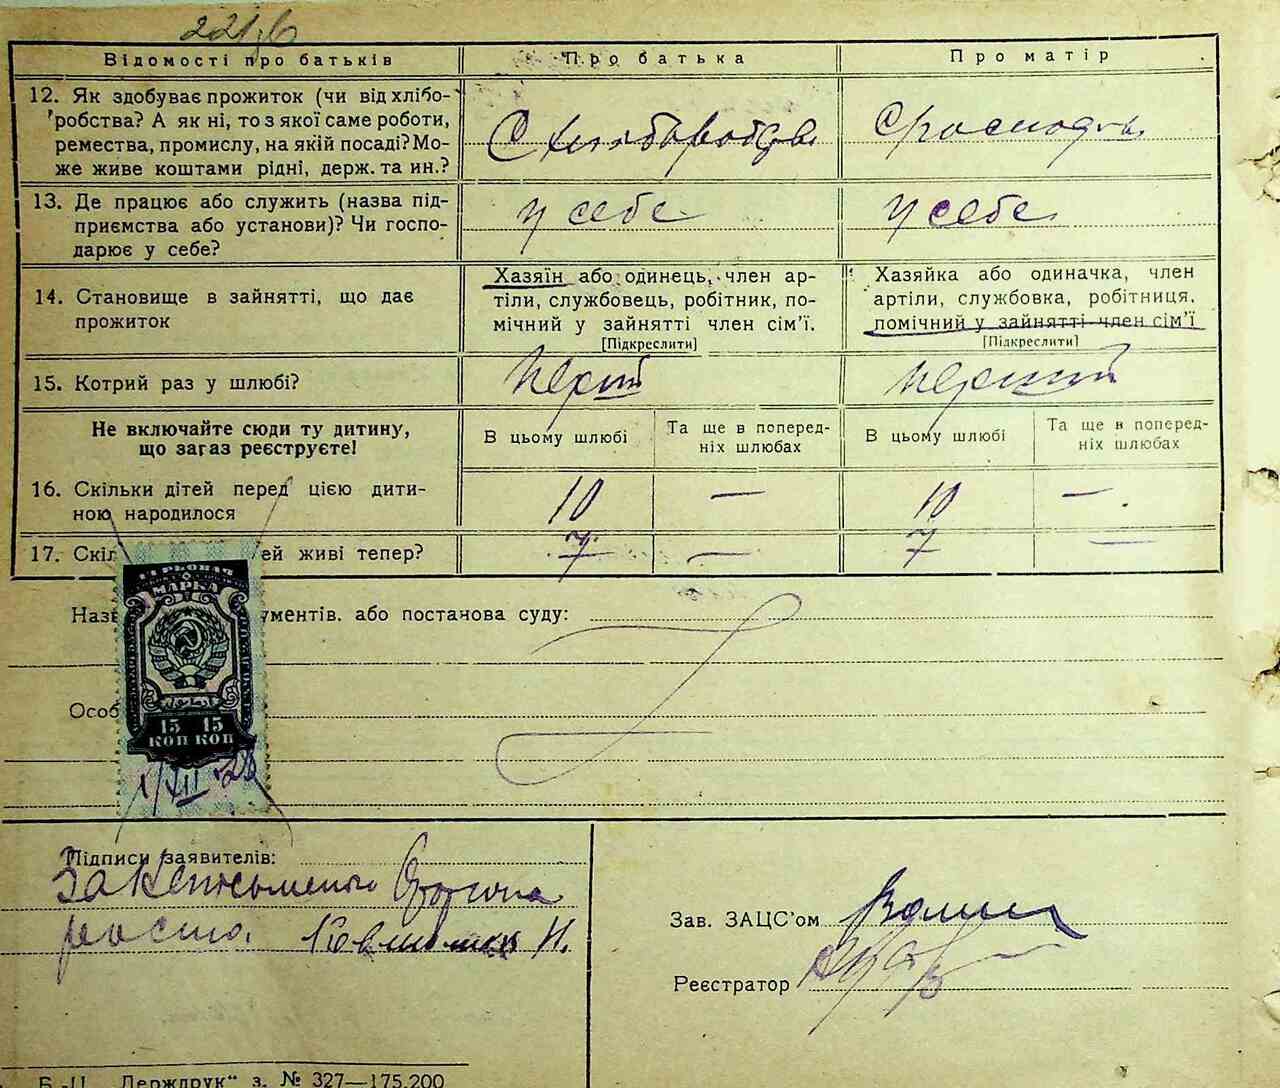 Відомості про батьків
Про батька
Про матір
12. Як здобуває прожиток (чи від хлібо-
робства? А як ні, то з якої саме роботи,
ремества, промислу, на якій посаді? Мо-
же живе коштами рідні, держ. та ин.?
С хлиборобства
13. Де працює або служить (назва під-
приємства або установи)? Чи госпо-
дарює у себе?
у себе
у себе
14. Становище в зайнятті, що дає
прожиток
Хазяїн або одинець, член ар-
тіли, службовець, робітник, по-
мічний у зайнятті член сім'ї.
[Підкреслити]
Хазяйка або одиначка, член
артіли, службовка, робітниця.
помічний у зайнятті член сім'ї
[Підкреслити]
15. Котрий раз у шлюбі?
Не включайте сюди ту дитину,
що загаз реєструєте!
В цьому шлюбі
Та ще в поперед-
ніх шлюбах
В цьому шлюбі
Та ще в поперед-
ніх шлюбах
16. Скільки дітей перед цією дити-
ною народилося
10 —
10 —
17. Скіл ей живі тепер?
7 —
7 —
Назв ументів. або постанова суду:
Особ
МАРКА
15 15
КОП КОП
Підписи заявителів:
Зав. ЗАЦС'ом
Реєстратор
Б.-Ц. „Держдрук" з. № 327—175.200